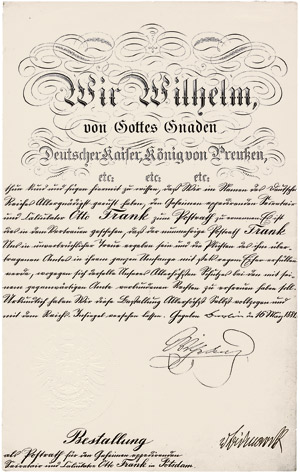 Wir Wilhelm,
von Gottes Gnaden
Deutscher Kaiser, König von Preußen,
etc; etc; etc;
thun kund und fügen hiermit zu wissen, daß Wir im Namen des Deutschen
Reichs Allergnädigst geruht haben, den Geheimen expedirenden Secretair
und Calculator Otto Frank zum Postrath zu ernennen. Es ist
das in dem Vertrauen geschehen, daß der nunmehrige Postrath Frank
Uns in unverbrüchlicher Treue ergeben sein und die Pflichten des ihm über-
tragenen Amtes in ihrem ganzen Umfange mit stets regem Eifer erfüllen
werde, wogegen sich derselbe Unseres Allerhöchsten Schutzes bei den mit sei-
nem gegenwärtigen Amte verbundenen Rechten zu erfreuen haben soll.
Urkundlich haben Wir diese Bestallung Allerhöchst Selbst vollzogen und
mit dem Reichs Insiegel versehen lassen. Gegeben Berlin, den 16 März 1881.
Wilhelm
Bestallung
als Postrath für den Geheimen expedirenden
Secretair und Calculator Otto Frank in Potsdam.
v Bismarck